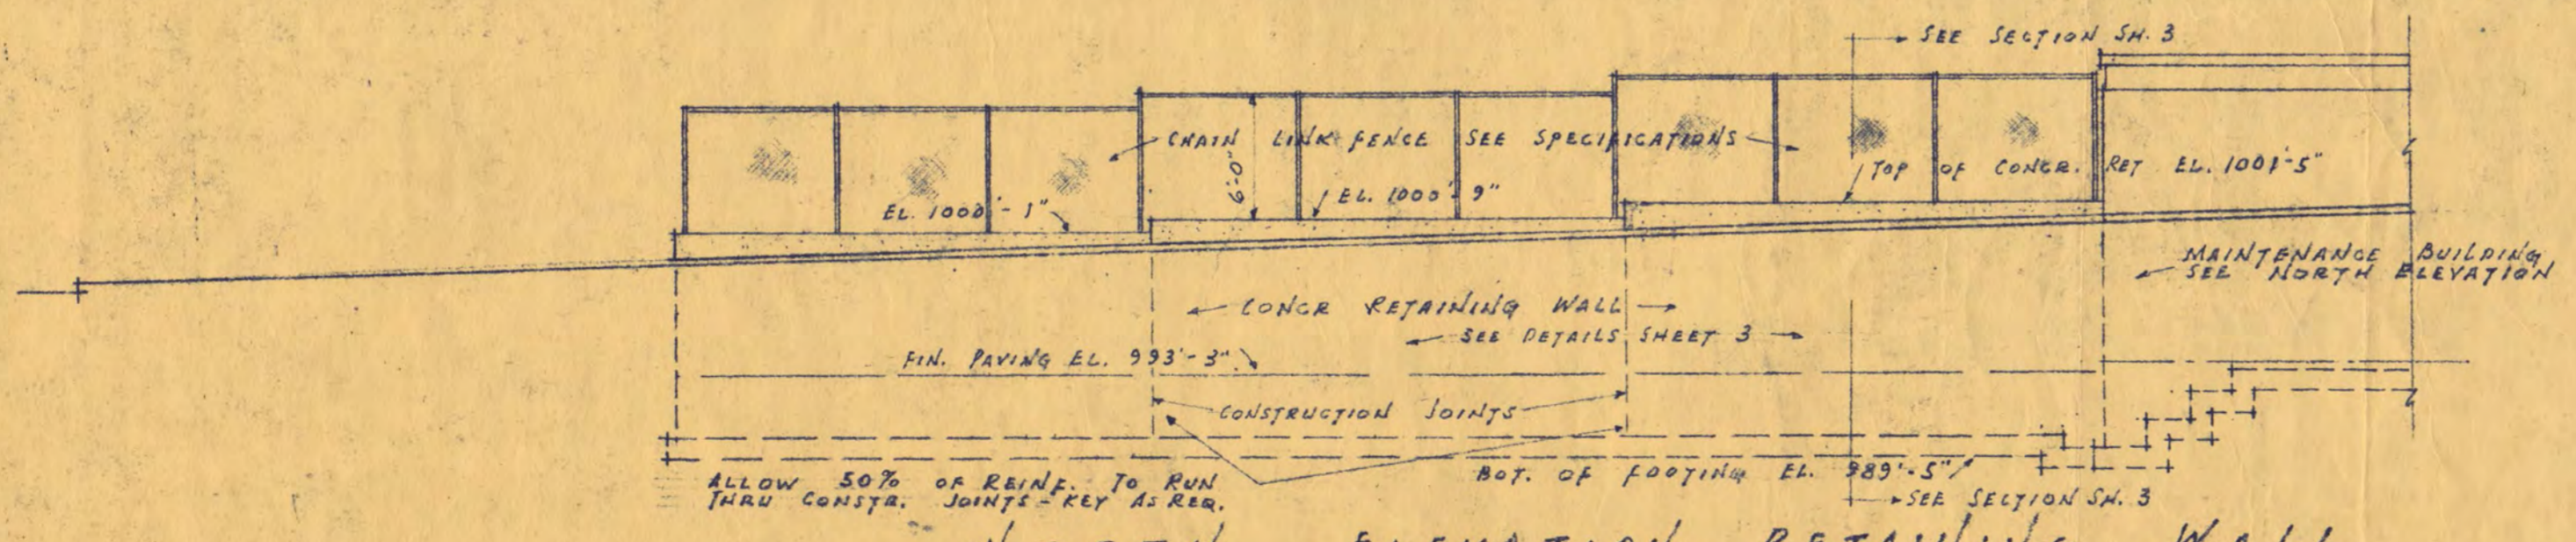 SEE SECTION SH. 3
CHAIN LINK FENCE SEE SPECIFICATIONS
6'-0"
EL. 1000'-1"
EL. 1000'-9"
TOP OF CONCR. RET EL. 1001'-5"
MAINTENANCE BUILDING
SEE NORTH ELEVATION
CONCR RETAINING WALL
SEE DETAILS SHEET 3
FIN. PAVING EL. 993'-3"
CONSTRUCTION JOINTS
ALLOW 50% OF REINF. TO RUN
THRU CONSTR. JOINTS - KEY AS REQ.
BOT. OF FOOTING EL. 989'-5"
SEE SECTION SH. 3
NORTH ELEVATION RETAINING WALL